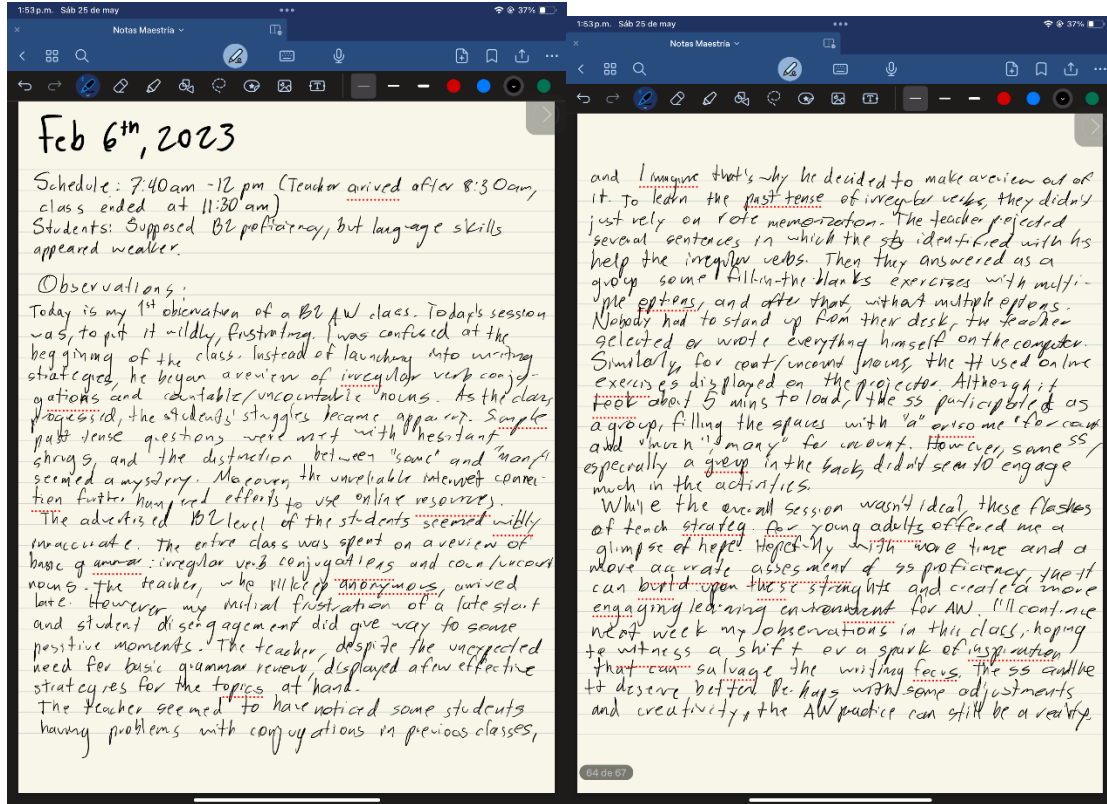 1:53 p.m. Sáb 25 de may
37%
Notas Maestría
Feb 6th, 2023
Schedule: 7:40am - 12 pm (Teacher arived after 8:30am,
class ended at 11:30 am)
Students: Supposed B2 proficiency, but language skills
appeared weaker.
Observations:
Today is my 1st observation of a B2 AW class. Today's session
was, to put it mildly, frustrating. I was confused at the
beggining of the class. Instead of launching into writing
strategies, he began a review of irregular verb conju-
gations and countable/uncountable nouns. As the class
progressed, the students' struggles became apparent. Simple
past tense questions were met with hesitant
shrugs, and the distinction between "some" and "many"
seemed a mystery. Moreover, the unreliable internet connec-
tion further hampered efforts to use online resources.
The advertized B2 level of the students seemed wildly
innaccurate. The entire class was spent on a review of
basic grammar: irregular verb conjugations and coun/uncount
nouns. The teacher, who I'll keep anonymous, arrived
late. However my initial frustration of a late start
and student disengagement did give way to some
positive moments. The teacher, despite the unexpected
need for basic grammar review, displayed a few effective
strategies for the topics at hand.
The teacher seemed to have noticed some students
having problems with conjugations in previous classes,
1:53 p.m. Sáb 25 de may
37%
Notas Maestría
and I imagine that's why he decided to make a review out of
it. To learn the past tense of irregular verbs, they didn't
just rely on rote memorization. The teacher projected
several sentences in which the sts identified with his
help the irregular verbs. Then they answered as a
group some fill-in-the-blanks exercises with multi-
ple options, and after that, without multiple options.
Nobody had to stand up from their desk, the teacher
selected or wrote everything himself on the computer.
Similarly, for cont/uncount nouns, the tt used online
exercises displayed on the projector. Although it
took about 5 mins to load, the ss participated as
a group, filling the spaces with "a" or "some" for count
and "much", "many" for uncount. However, some ss,
especially a group in the back, didn't seem to engage
much in the activities.
While the overall session wasn't ideal, these flashes
of teach strateg. for young adults offered me a
glimpse of hope. Hopefully with more time and a
more accurate assesment of ss proficiency, the tt
can build upon these strenghts and create a more
engaging learning environment for AW. I'll continue
next week my observations in this class, hoping
to witness a shift or a spark of inspiration
that can salvage the writing focus. The ss and the
tt deserve better. Perhaps with some adjustments
and creativity, the AW practice can still be a reality.
64 de 67